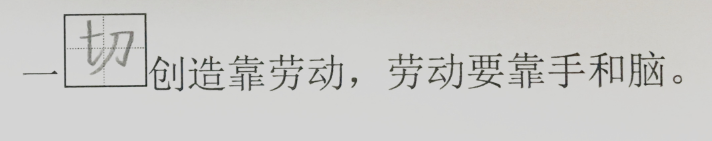 一切创造靠劳动，劳动要靠手和脑。